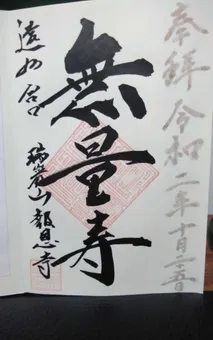 奉拝 令和二年十月二十五日
無量寿
遠州 谷口
瑞巖山 報恩寺